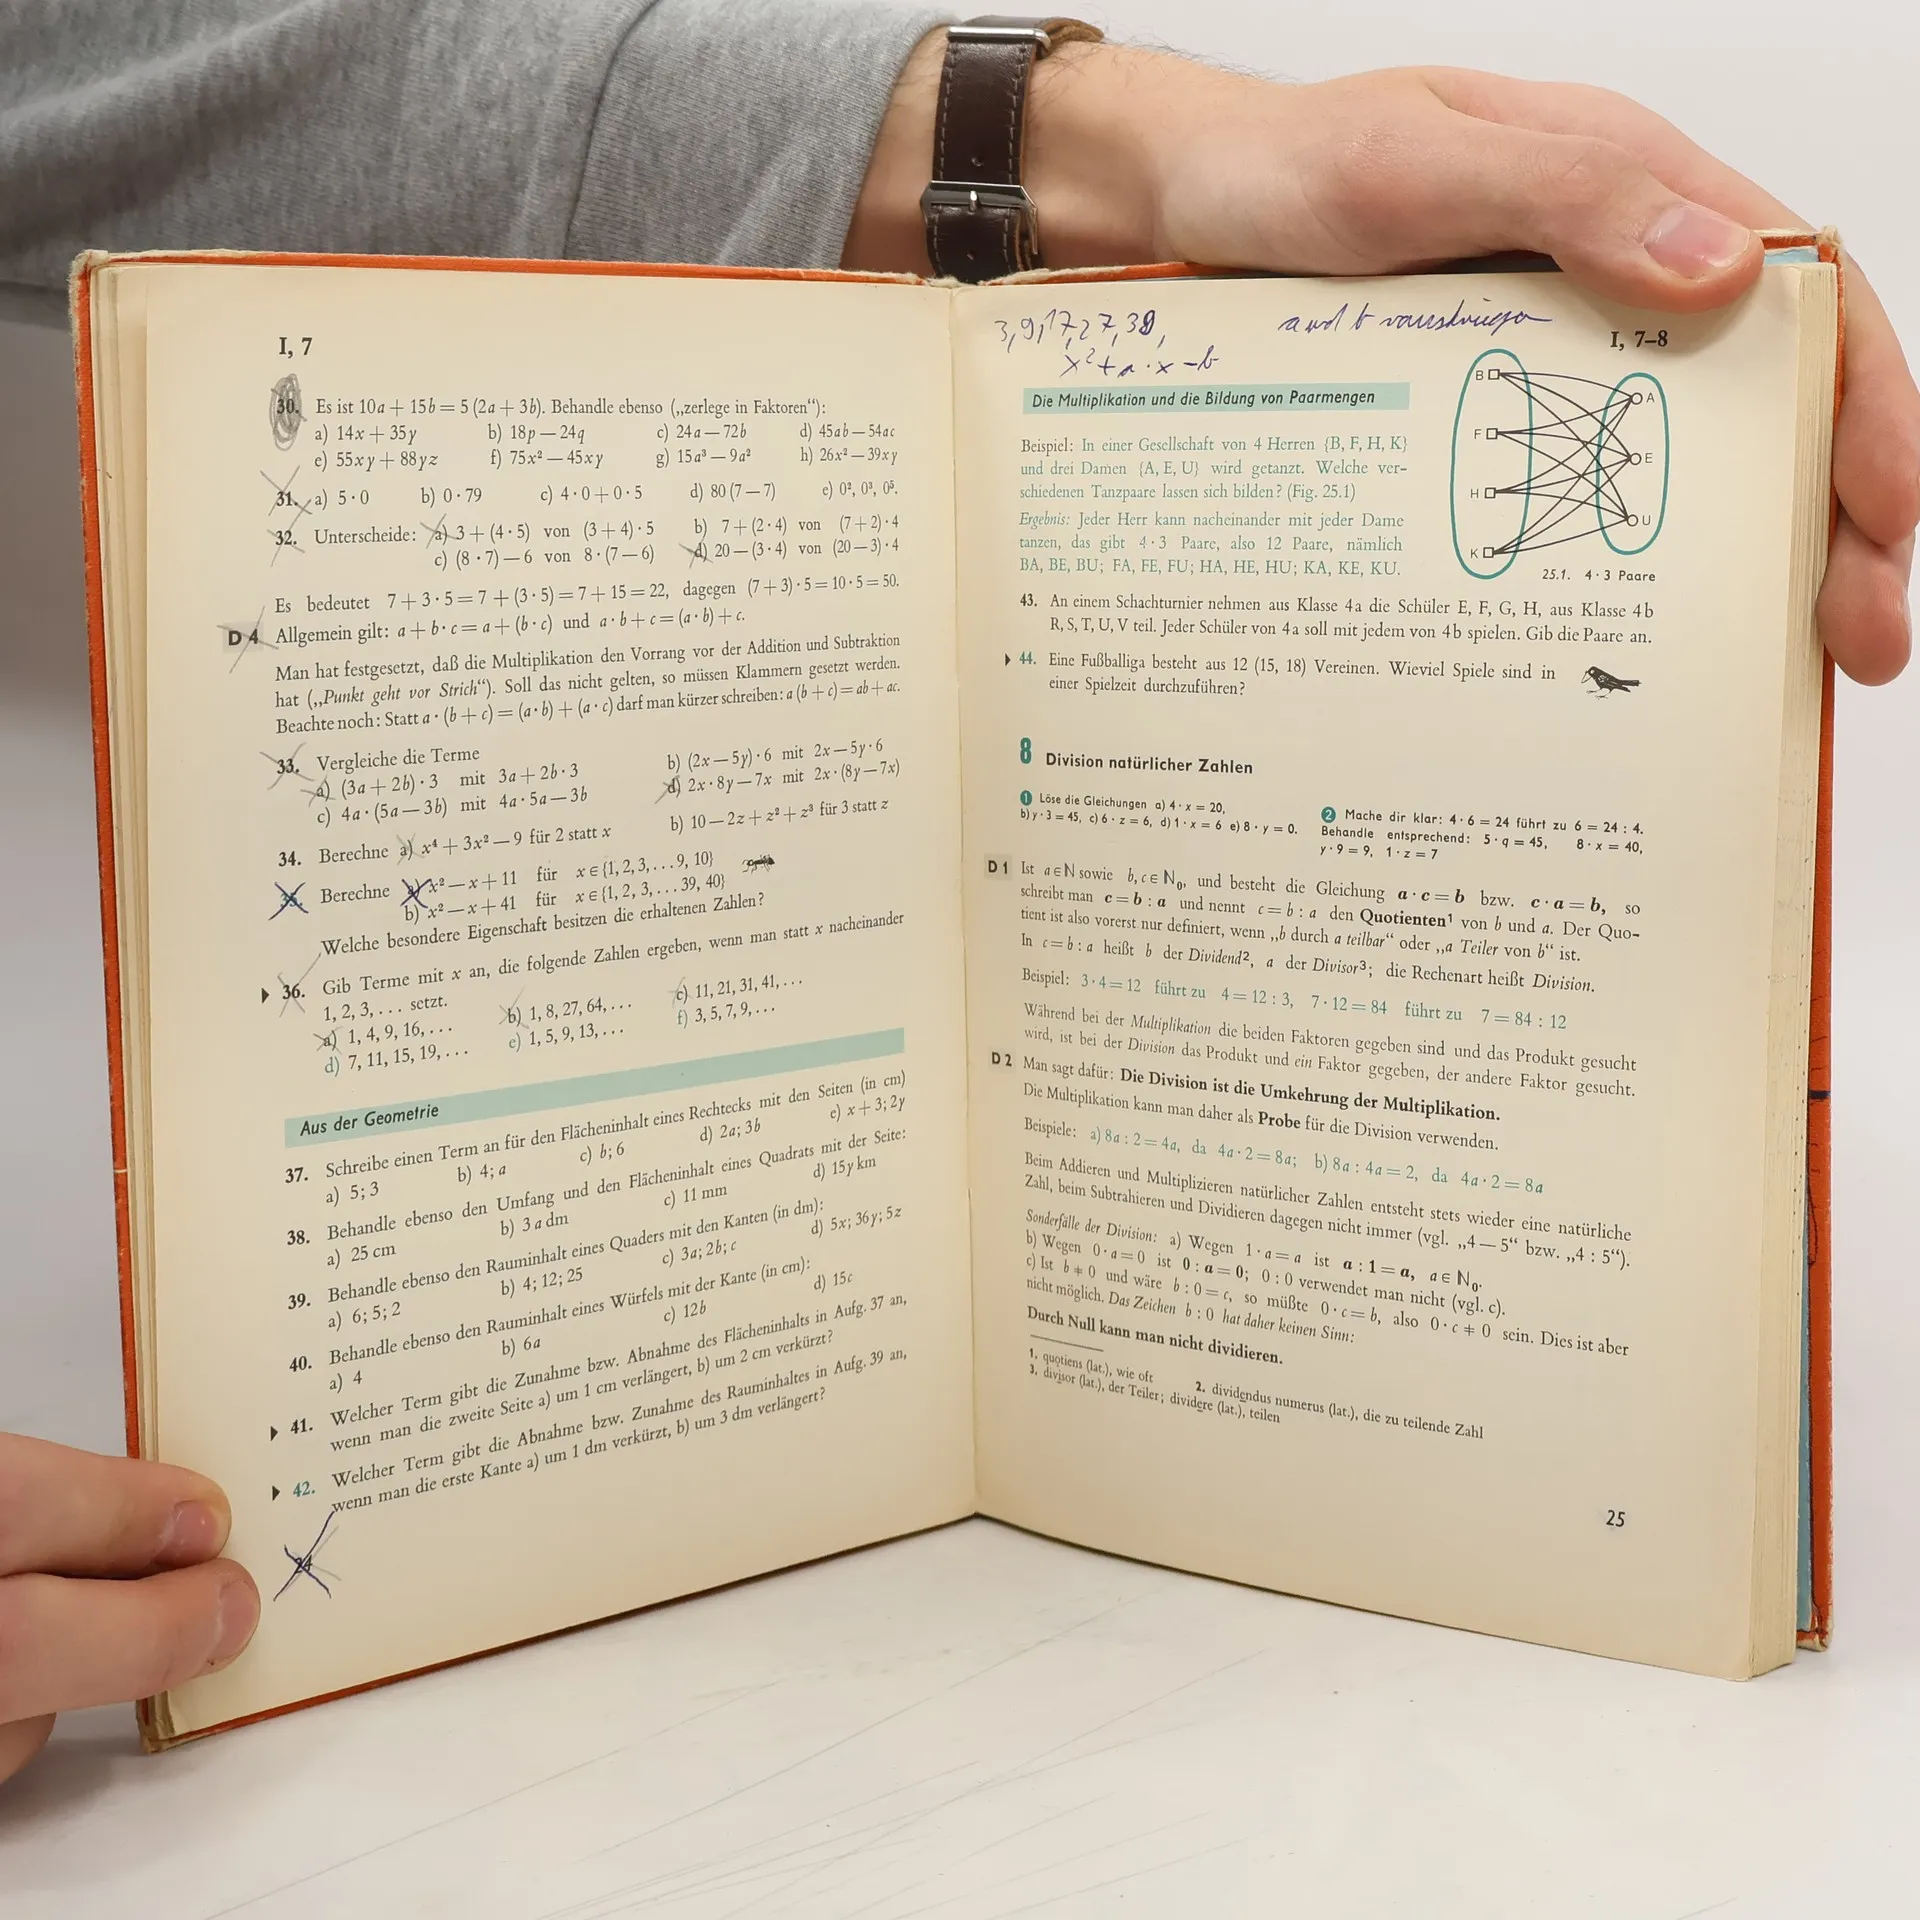 I, 7
30. Es ist 10a + 15b = 5 (2a + 3b). Behandle ebenso („zerlege in Faktoren“):
a) 14x + 35y b) 18p − 24q c) 24a − 72b d) 45ab − 54ac
e) 55xy + 88yz f) 75x² − 45xy g) 15a³ − 9a² h) 26x² − 39xy
31. a) 5 · 0 b) 0 · 79 c) 4 · 0 + 0 · 5 d) 80 (7 − 7) e) 0², 0³, 0⁵.
32. Unterscheide: a) 3 + (4 · 5) von (3 + 4) · 5 b) 7 + (2 · 4) von (7 + 2) · 4
c) (8 · 7) − 6 von 8 · (7 − 6) d) 20 − (3 · 4) von (20 − 3) · 4
Es bedeutet 7 + 3 · 5 = 7 + (3 · 5) = 7 + 15 = 22, dagegen (7 + 3) · 5 = 10 · 5 = 50.
D 4 Allgemein gilt: a + b · c = a + (b · c) und a · b + c = (a · b) + c.
Man hat festgesetzt, daß die Multiplikation den Vorrang vor der Addition und Subtraktion
hat („Punkt geht vor Strich“). Soll das nicht gelten, so müssen Klammern gesetzt werden.
Beachte noch: Statt a · (b + c) = (a · b) + (a · c) darf man kürzer schreiben: a (b + c) = ab + ac.
33. Vergleiche die Terme
a) (3a + 2b) · 3 mit 3a + 2b · 3 b) (2x − 5y) · 6 mit 2x − 5y · 6
c) 4a · (5a − 3b) mit 4a · 5a − 3b d) 2x · 8y − 7x mit 2x · (8y − 7x)
34. Berechne a) x⁴ + 3x² − 9 für 2 statt x b) 10 − 2z + z² + z³ für 3 statt z
35. Berechne a) x² − x + 11 für x ∈ {1, 2, 3, . . . 9, 10}
b) x² − x + 41 für x ∈ {1, 2, 3, . . . 39, 40}
Welche besondere Eigenschaft besitzen die erhaltenen Zahlen?
36. Gib Terme mit x an, die folgende Zahlen ergeben, wenn man statt x nacheinander
1, 2, 3, . . . setzt.
a) 1, 4, 9, 16, . . . b) 1, 8, 27, 64, . . . c) 11, 21, 31, 41, . . .
d) 7, 11, 15, 19, . . . e) 1, 5, 9, 13, . . . f) 3, 5, 7, 9, . . .
Aus der Geometrie
37. Schreibe einen Term an für den Flächeninhalt eines Rechtecks mit den Seiten (in cm)
a) 5; 3 b) 4; a c) b; 6 d) 2a; 3b e) x + 3; 2y
38. Behandle ebenso den Umfang und den Flächeninhalt eines Quadrats mit der Seite:
a) 25 cm b) 3 a dm c) 11 mm d) 15y km
39. Behandle ebenso den Rauminhalt eines Quaders mit den Kanten (in dm):
a) 6; 5; 2 b) 4; 12; 25 c) 3a; 2b; c d) 5x; 36y; 5z
40. Behandle ebenso den Rauminhalt eines Würfels mit der Kante (in cm):
a) 4 b) 6a c) 12b d) 15c
41. Welcher Term gibt die Zunahme bzw. Abnahme des Flächeninhalts in Aufg. 37 an,
wenn man die zweite Seite a) um 1 cm verlängert, b) um 2 cm verkürzt?
42. Welcher Term gibt die Abnahme bzw. Zunahme des Rauminhaltes in Aufg. 39 an,
wenn man die erste Kante a) um 1 dm verkürzt, b) um 3 dm verlängert?
24
3, 9, 17, 27, 39,
x² + a · x − b
a und b
I, 7–8
Die Multiplikation und die Bildung von Paarmengen
Beispiel: In einer Gesellschaft von 4 Herren {B, F, H, K}
und drei Damen {A, E, U} wird getanzt. Welche ver-
schiedenen Tanzpaare lassen sich bilden? (Fig. 25.1)
Ergebnis: Jeder Herr kann nacheinander mit jeder Dame
tanzen, das gibt 4 · 3 Paare, also 12 Paare, nämlich
BA, BE, BU; FA, FE, FU; HA, HE, HU; KA, KE, KU.
B A
F E
H U
K
25.1. 4 · 3 Paare
43. An einem Schachturnier nehmen aus Klasse 4a die Schüler E, F, G, H, aus Klasse 4b
R, S, T, U, V teil. Jeder Schüler von 4a soll mit jedem von 4b spielen. Gib die Paare an.
44. Eine Fußballiga besteht aus 12 (15, 18) Vereinen. Wieviel Spiele sind in
einer Spielzeit durchzuführen?
8 Division natürlicher Zahlen
1 Löse die Gleichungen a) 4 · x = 20,
b) y · 3 = 45, c) 6 · z = 6, d) 1 · x = 6 e) 8 · y = 0.
2 Mache dir klar: 4 · 6 = 24 führt zu 6 = 24 : 4.
Behandle entsprechend: 5 · q = 45, 8 · x = 40,
y · 9 = 9, 1 · z = 7
D 1 Ist a ∈ N sowie b, c ∈ N₀, und besteht die Gleichung a · c = b bzw. c · a = b, so
schreibt man c = b : a und nennt c = b : a den Quotienten¹ von b und a. Der Quo-
tient ist also vorerst nur definiert, wenn „b durch a teilbar“ oder „a Teiler von b“ ist.
In c = b : a heißt b der Dividend², a der Divisor³; die Rechenart heißt Division.
Beispiel: 3 · 4 = 12 führt zu 4 = 12 : 3, 7 · 12 = 84 führt zu 7 = 84 : 12
Während bei der Multiplikation die beiden Faktoren gegeben sind und das Produkt gesucht
wird, ist bei der Division das Produkt und ein Faktor gegeben, der andere Faktor gesucht.
D 2 Man sagt dafür: Die Division ist die Umkehrung der Multiplikation.
Die Multiplikation kann man daher als Probe für die Division verwenden.
Beispiele: a) 8a : 2 = 4a, da 4a · 2 = 8a; b) 8a : 4a = 2, da 4a · 2 = 8a
Beim Addieren und Multiplizieren natürlicher Zahlen entsteht stets wieder eine natürliche
Zahl, beim Subtrahieren und Dividieren dagegen nicht immer (vgl. „4 − 5“ bzw. „4 : 5“).
Sonderfälle der Division: a) Wegen 1 · a = a ist a : 1 = a, a ∈ N₀.
b) Wegen 0 · a = 0 ist 0 : a = 0; 0 : 0 verwendet man nicht (vgl. c).
c) Ist b ≠ 0 und wäre b : 0 = c, so müßte 0 · c = b, also 0 · c ≠ 0 sein. Dies ist aber
nicht möglich. Das Zeichen b : 0 hat daher keinen Sinn:
Durch Null kann man nicht dividieren.
1. quotiens (lat.), wie oft 2. dividendus numerus (lat.), die zu teilende Zahl
3. divisor (lat.), der Teiler; dividere (lat.), teilen
25